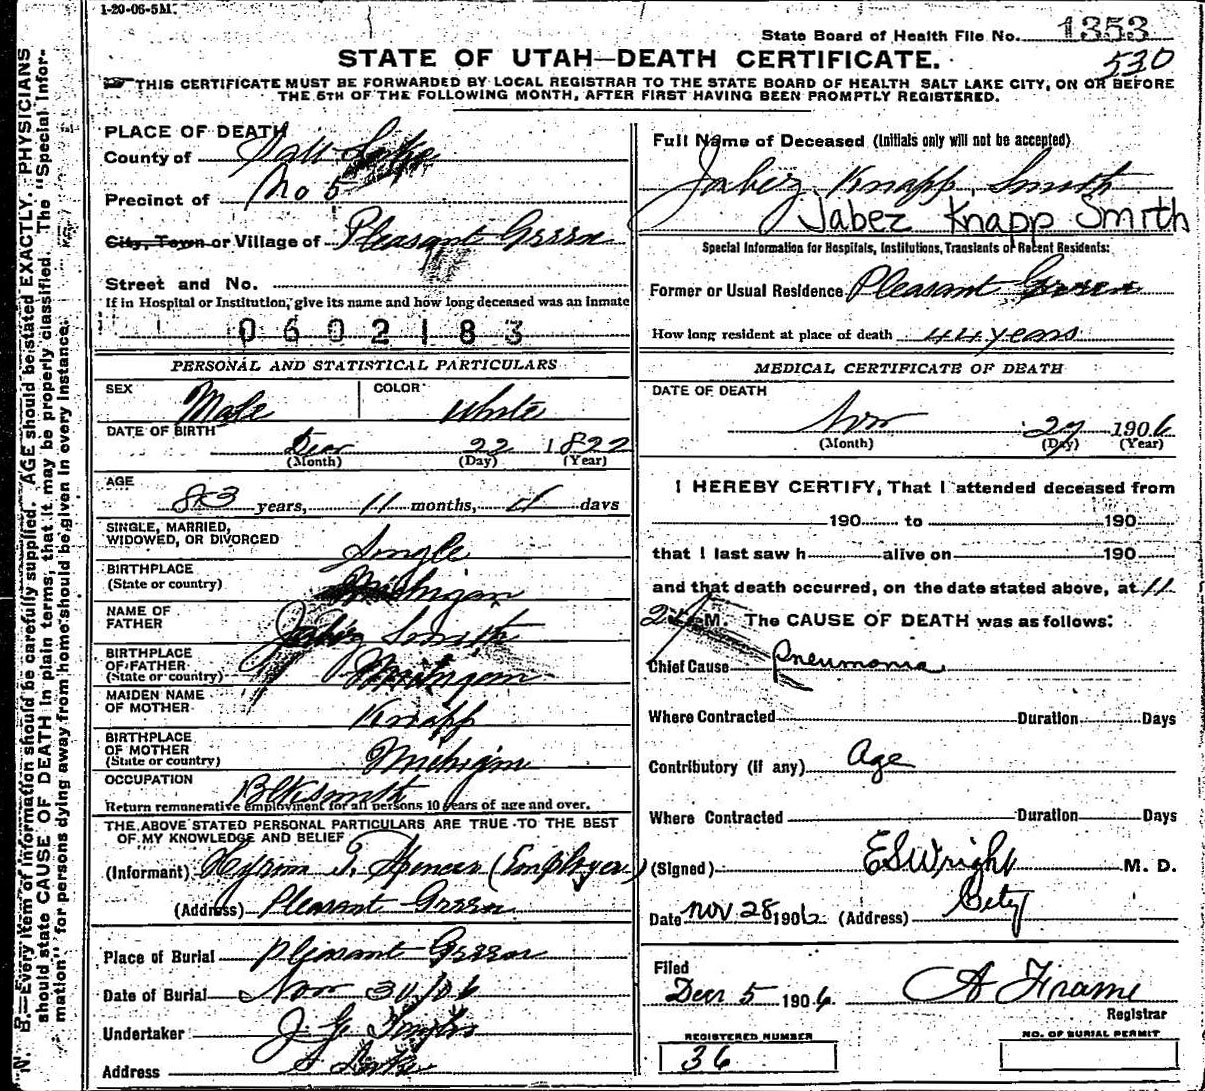 1-20-06-5M.
State Board of Health File No. 1353
530
STATE OF UTAH—DEATH CERTIFICATE.
THIS CERTIFICATE MUST BE FORWARDED BY LOCAL REGISTRAR TO THE STATE BOARD OF HEALTH SALT LAKE CITY, ON OR BEFORE
THE 5TH OF THE FOLLOWING MONTH, AFTER FIRST HAVING BEEN PROMPTLY REGISTERED.
N. B.—Every item of information should be carefully supplied. AGE should be stated EXACTLY. PHYSICIANS
should state CAUSE OF DEATH in plain terms, that it may be properly classified. The "Special Infor-
mation" for persons dying away from home should be given in every instance.
PLACE OF DEATH
County of Salt Lake
Precinct of No 5
City, Town or Village of Pleasant Green
Street and No.
If in Hospital or Institution, give its name and how long deceased was an inmate
0602183
PERSONAL AND STATISTICAL PARTICULARS
SEX Male COLOR White
DATE OF BIRTH
Dec 22 1822
(Month) (Day) (Year)
AGE
83 years, 11 months, days
SINGLE, MARRIED,
WIDOWED, OR DIVORCED Single
BIRTHPLACE
(State or country) Michigan
NAME OF
FATHER Smith
BIRTHPLACE
OF FATHER
(State or country) Michigan
MAIDEN NAME
OF MOTHER Knapp
BIRTHPLACE
OF MOTHER
(State or country) Michigan
OCCUPATION Blksmith
Return remunerative employment for all persons 10 years of age and over.
THE ABOVE STATED PERSONAL PARTICULARS ARE TRUE TO THE BEST
OF MY KNOWLEDGE AND BELIEF
(Informant) Hyrum T. Spencer (Employer)
(Address) Pleasant Green
Place of Burial Pleasant Green
Date of Burial Nov 30/06
Undertaker J. G.
Address S Lake
Full Name of Deceased (Initials only will not be accepted)
Jabez Knapp Smith
Jabez Knapp Smith
Special Information for Hospitals, Institutions, Transients or Recent Residents:
Former or Usual Residence Pleasant Green
How long resident at place of death 44 years
MEDICAL CERTIFICATE OF DEATH
DATE OF DEATH
Nov 27 1906
(Month) (Day) (Year)
I HEREBY CERTIFY, That I attended deceased from
190 to 190
that I last saw h alive on 190
and that death occurred, on the date stated above, at 11
M. The CAUSE OF DEATH was as follows:
Chief Cause Pneumonia
Where Contracted Duration Days
Contributory (if any) Age
Where Contracted Duration Days
(Signed) E S Wright M. D.
Date Nov 28 1906 (Address) City
Filed
Dec 5 1906 A Frame
Registrar
REGISTERED NUMBER
36
NO. OF BURIAL PERMIT